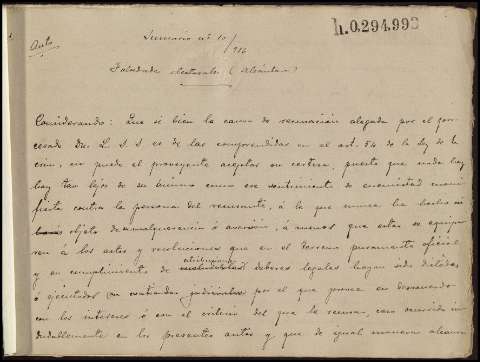 h.0.294.993
Auto
Sumario nº 10/916
electorales (Alcántara)
Considerando: Que si bien la causa de recusación alegada por el pro-
cesado Dn. L. S. S. es de las comprendidas en el art. 54 de la Ley de
no puede el proveyente aceptar su certeza, puesto que nada hay
hay tan lejos de su ánimo como ese sentimiento de enemistad mani
fiesta contra la persona del recusante, á la que nunca ha hecho ni
objeto de malquerencia ó aversión, á menos que estas se equipa-
ren á los actos y resoluciones que en el terreno puramente oficial
y en cumplimiento de atribuciones deberes legales hayan sido dictados
ó ejecutados por el que provee en desacuerdo
con los intereses ó con el criterio del que le recusa, caso ocurrido in
dudablemente en los presentes autos y que de igual manera